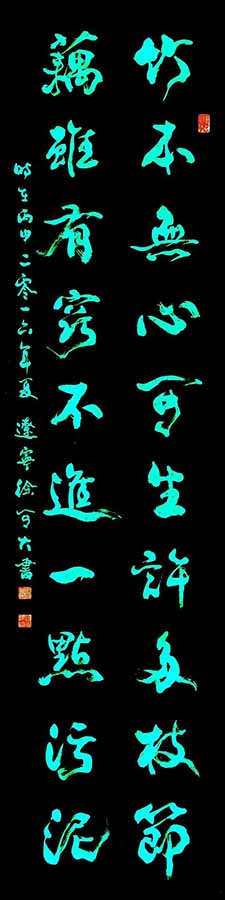 竹本無心可生許多枝節
藕雖有窍不進一點污泥
時在丙申二零一六年夏 遼寧徐可大書